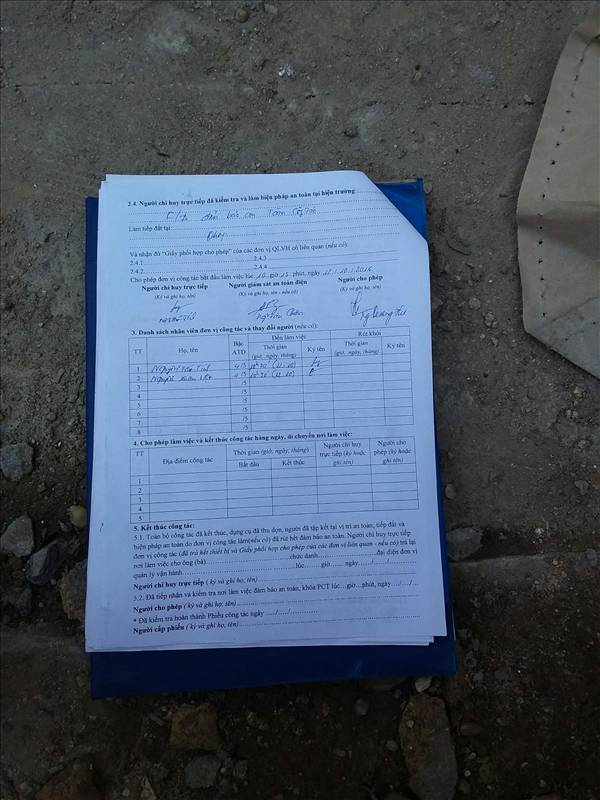 2.4. Người chỉ huy trực tiếp đã kiểm tra và làm biện pháp an toàn tại hiện trường
đảm bảo an toàn
Làm tiếp đất tại:
Và nhận đủ "Giấy phối hợp cho phép" của các đơn vị QLVH có liên quan (nếu có):
2.4.1 2.4.3
2.4.2 2.4.4
Cho phép đơn vị công tác bắt đầu làm việc lúc giờ phút, ngày
Người chỉ huy trực tiếp Người giám sát an toàn điện Người cho phép
(Ký và ghi họ, tên) (Ký và ghi họ, tên - nếu có) (Ký và ghi họ, tên)
3. Danh sách nhân viên đơn vị công tác và thay đổi người (nếu có):
TT Họ, tên Bậc ATĐ Đến làm việc Rút khỏi
Thời gian (giờ, ngày, tháng) Ký tên Thời gian (giờ, ngày, tháng) Ký tên
1 4/5
2 4/5
3 /5
4 /5
5 /5
6 /5
7 /5
8 /5
4. Cho phép làm việc và kết thúc công tác hàng ngày, di chuyển nơi làm việc:
TT Địa điểm công tác Thời gian (giờ, ngày, tháng) Người chỉ huy trực tiếp (ký hoặc ghi tên) Người cho phép (ký hoặc ghi tên)
Bắt đầu Kết thúc
1
2
3
4
5
5. Kết thúc công tác:
5.1. Toàn bộ công tác đã kết thúc, dụng cụ đã thu dọn, người đã tập kết tại vị trí an toàn, tiếp đất và
biện pháp an toàn do đơn vị công tác làm(nếu có) đã rút hết đảm bảo an toàn. Người chỉ huy trực tiếp
đơn vị công tác (đã trả kết thiết bị và Giấy phối hợp cho phép của các đơn vị liên quan - nếu có) trả lại
nơi làm việc cho ông (bà) chức danh đại diện đơn vị
quản lý vận hành lúc giờ ngày / /
Người chỉ huy trực tiếp ( ký và ghi họ, tên)
5.2. Đã tiếp nhận và kiểm tra nơi làm việc đảm bảo an toàn, khóa PCT lúc giờ phút, ngày / /
Người cho phép ( ký và ghi họ, tên)
* Đã kiểm tra hoàn thành Phiếu công tác ngày / /
Người cấp phiếu ( ký và ghi họ, tên)